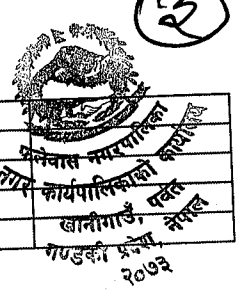 २
फलेवास नगरपालिका
नगर कार्यपालिकाको कार्यालय
खानीगाउँ, पर्वत
गण्डकी प्रदेश, नेपाल
२०७३